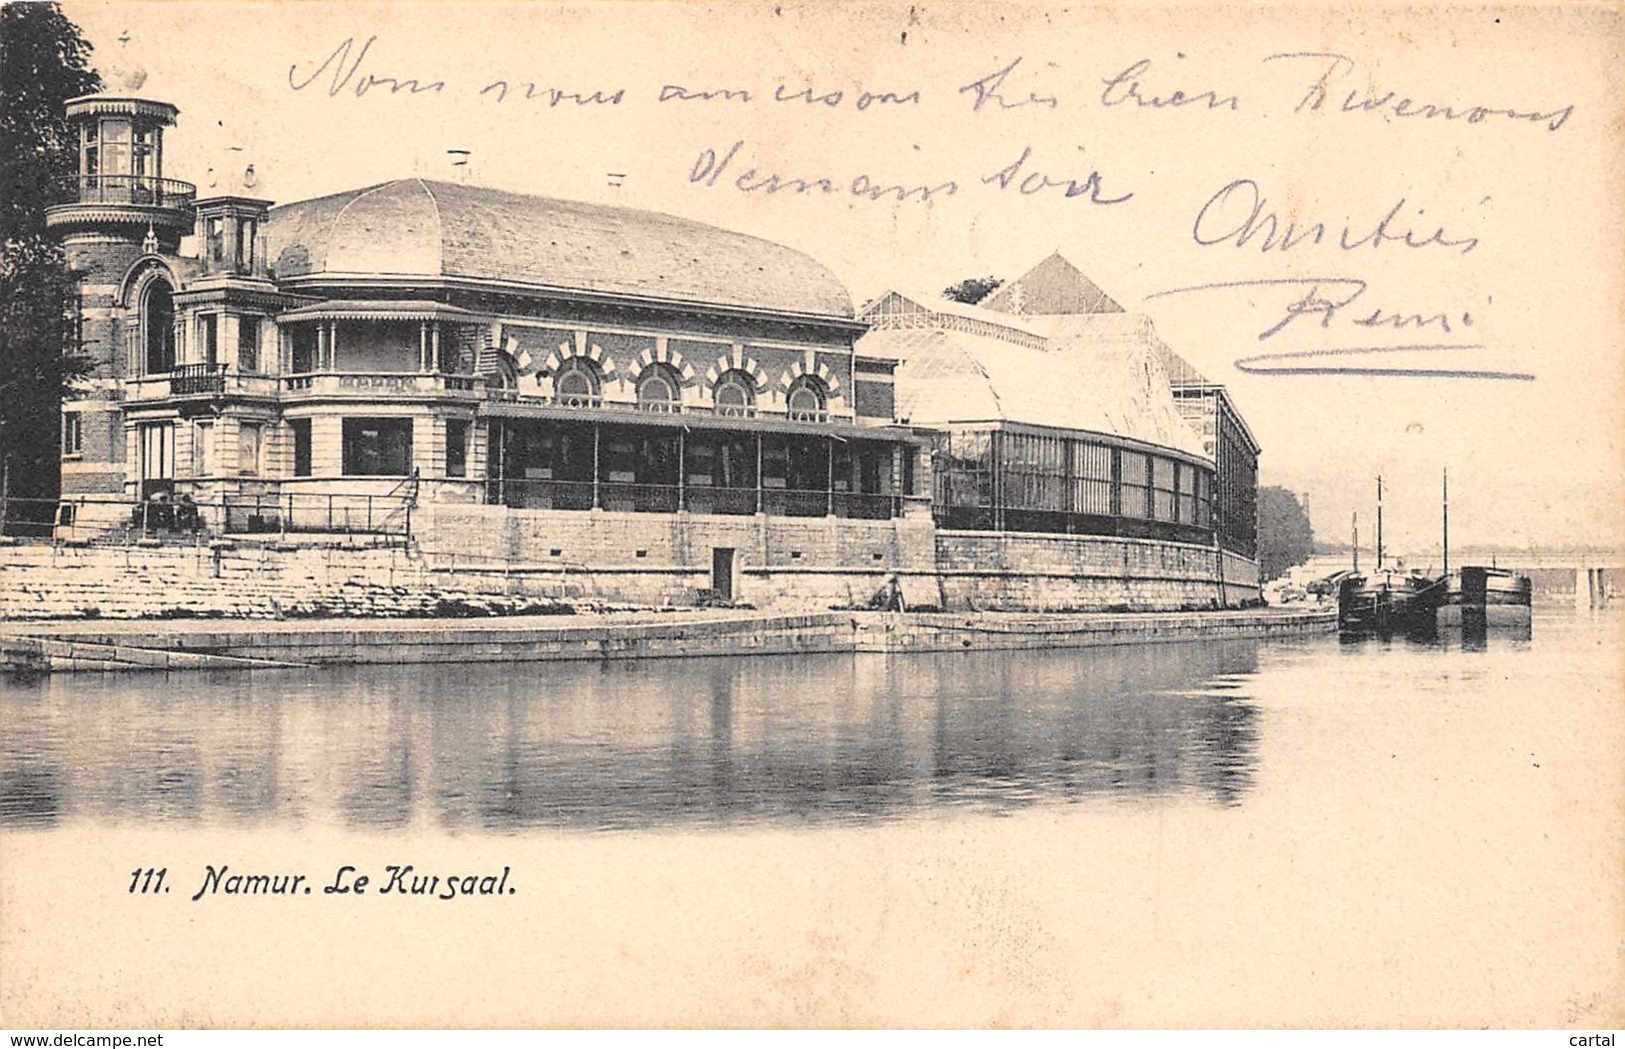 Nous nous amusons très bien Revenons
demain soir Amitiés
Remi
111. Namur. Le Kursaal.
www.delcampe.net
cartal